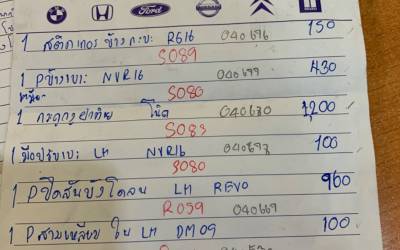 Ford NISSAN
1 สติกเกอร ข้างกะบะ RG16 040696 150
S089
1 Pข้างเบาะ NVR16 040699 430
S080
1 กระดูกฝาท้าย โน๊ต 040630 1,200
S083
1 มือปรับเบาะ LH NVR16 100
S080
1 Pปิดสันบังโคลน LH REVO 900
R059 040669
1 Pสามเหลี่ยม ใน LH DM09 100